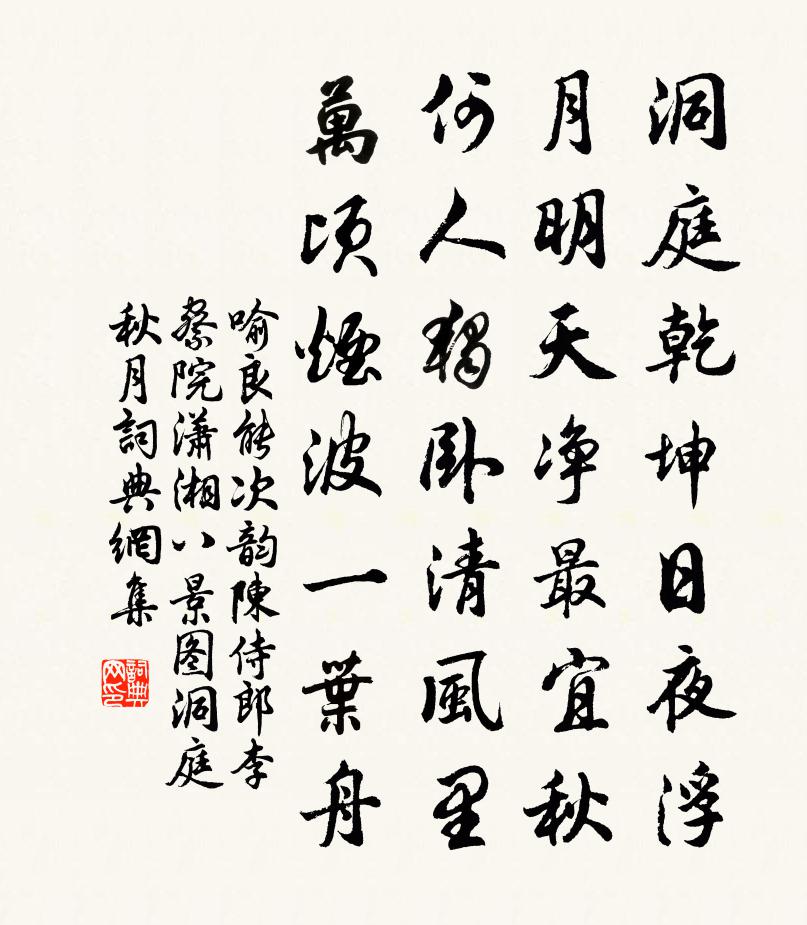 洞庭乾坤日夜浮
月明天净最宜秋
何人獨卧清風里
萬頃煙波一葉舟
喻良能次韵陳侍郎李
察院瀟湘八景图洞庭
秋月詞典網集
詞典
网印